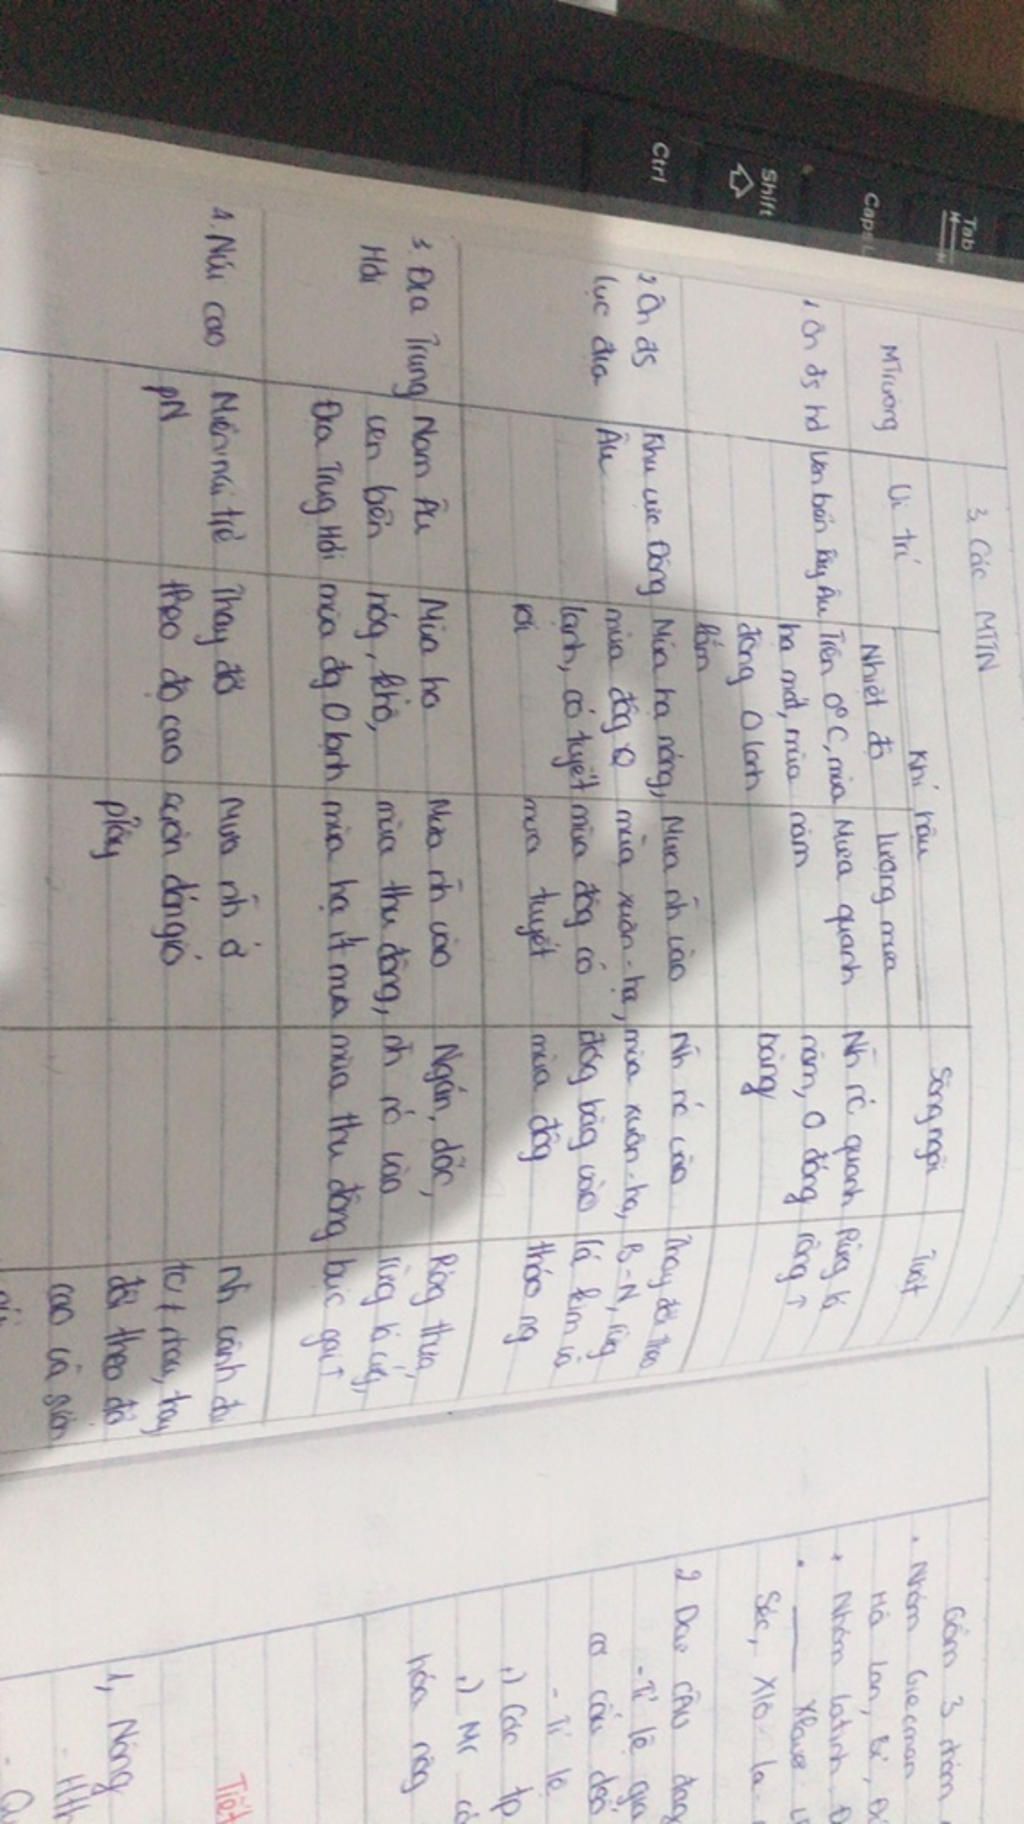 Tab
Caps L
Shift
Ctrl
3. Các MTTN
MTrường
Vị trí
Khí hậu
Nhiệt độ
lượng mưa
Sông ngòi
1 Ôn đs hd
Ven biển Tây Âu
Trên 0°C, mùa
hạ mát, mùa
đông 0 lạnh
lắm
Mưa quanh
năm
Nh nc quanh
năm, 0 đóng
băng
Rừng lá
rộng ↑
2 Ôn đs
lục địa
Khu vực Đông
Âu
Mùa hạ nóng,
mùa đông
lạnh, có tuyết
rơi
Mưa nh vào
mùa xuân-hạ,
mùa đông có
mưa tuyết
Nh nc vào
mùa xuân-hạ,
đóng băng vào
mùa đông
Thay đổi theo
B-N, rừng
lá kim và
thảo ng
3. Địa Trung
Hải
Nam Âu
ven biển
Địa Trung Hải
Mùa hạ
nóng, khô,
mùa đg 0 lạnh
Mưa nh vào
mùa thu đông,
mùa hạ ít mưa
Ngắn, dốc,
nh nc vào
mùa thu đông
Rừng thưa,
rừng lá cứng,
bụi gai ↑
4. Núi cao
Miền núi trẻ
pN
Thay đổi
theo độ cao
Mưa nh ở
sườn đón gió
ptây
nh vành đai
tv ≠ nhau, thay
đổi theo độ
cao và
Gồm 3 nhóm
Nhóm Giecman
Hà Lan, Bỉ,
+ Nhóm latinh
Xlavơ
Séc, Xlô
2 Dân cư
- Tỉ lệ gia
cơ cấu dsố
- Tỉ lệ
Các tp
hóa nông
Tiết
1, Nông
- Hth